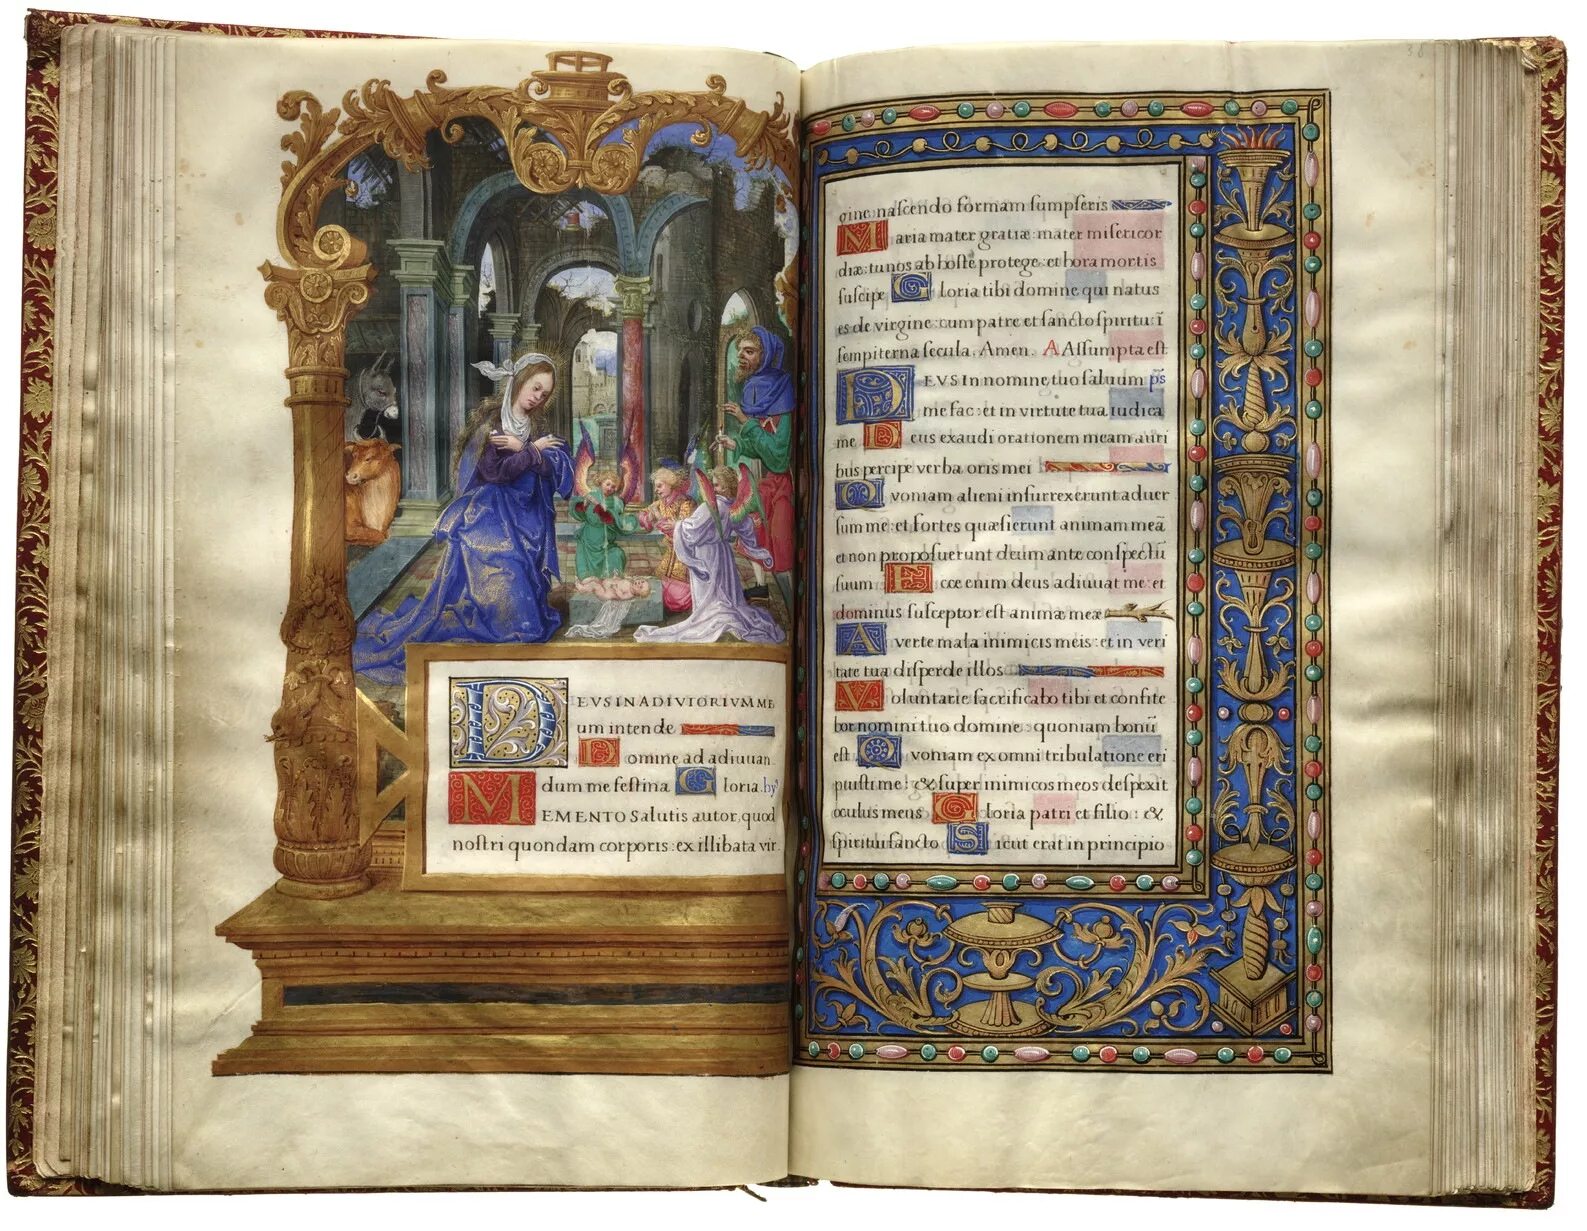 DEVS IN ADIVTORIVM ME
um intende
Domine ad adiuuan
dum me festina Gloria. hỹ
MEMENTO Salutis autor, quod
nostri quondam corporis: ex illibata vir.
38
gine nascendo formam sumpseris
Maria mater gratiæ: mater misericor
diæ: tu nos ab hoste protege: et hora mortis
suscipe Gloria tibi domine qui natus
es de virgine: cum patre et sancto spiritu: ĩ
sempiterna secula. Amen. A Assumpta est
DEVS In nomine tuo saluum p̃s
me fac: et in virtute tua iudica
me Deus exaudi orationem meam: auri
bus percipe verba oris mei
Quoniam alieni insurrexerunt aduer
sum me: et fortes quæsierunt animam meã
et non proposuerunt deum ante conspectũ
suum Ecce enim deus adiuuat me: et
dominus susceptor est animæ meæ
Auerte mala inimicis meis: et in veri
tate tua disperde illos
Voluntarie sacrificabo tibi et confite
bor nomini tuo domine: quoniam bonũ
est Quoniam ex omni tribulatione eri
puisti me: & super inimicos meos despexit
oculus meus Gloria patri et filio: &
spiritui sancto Sicut erat in principio